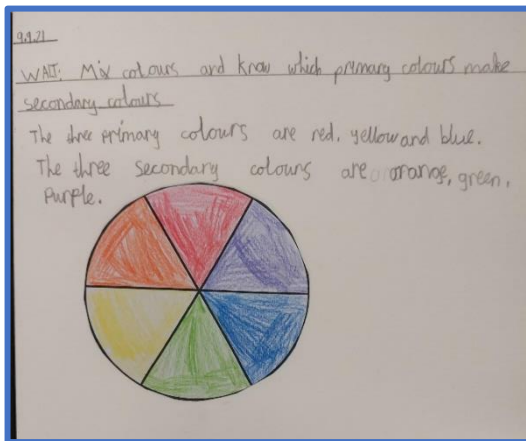 9.9.21
WALT: Mix colours and know which primary colours make
secondary colours
The three primary colours are red, yellow and blue.
The three secondary colours are orange, green,
Purple.